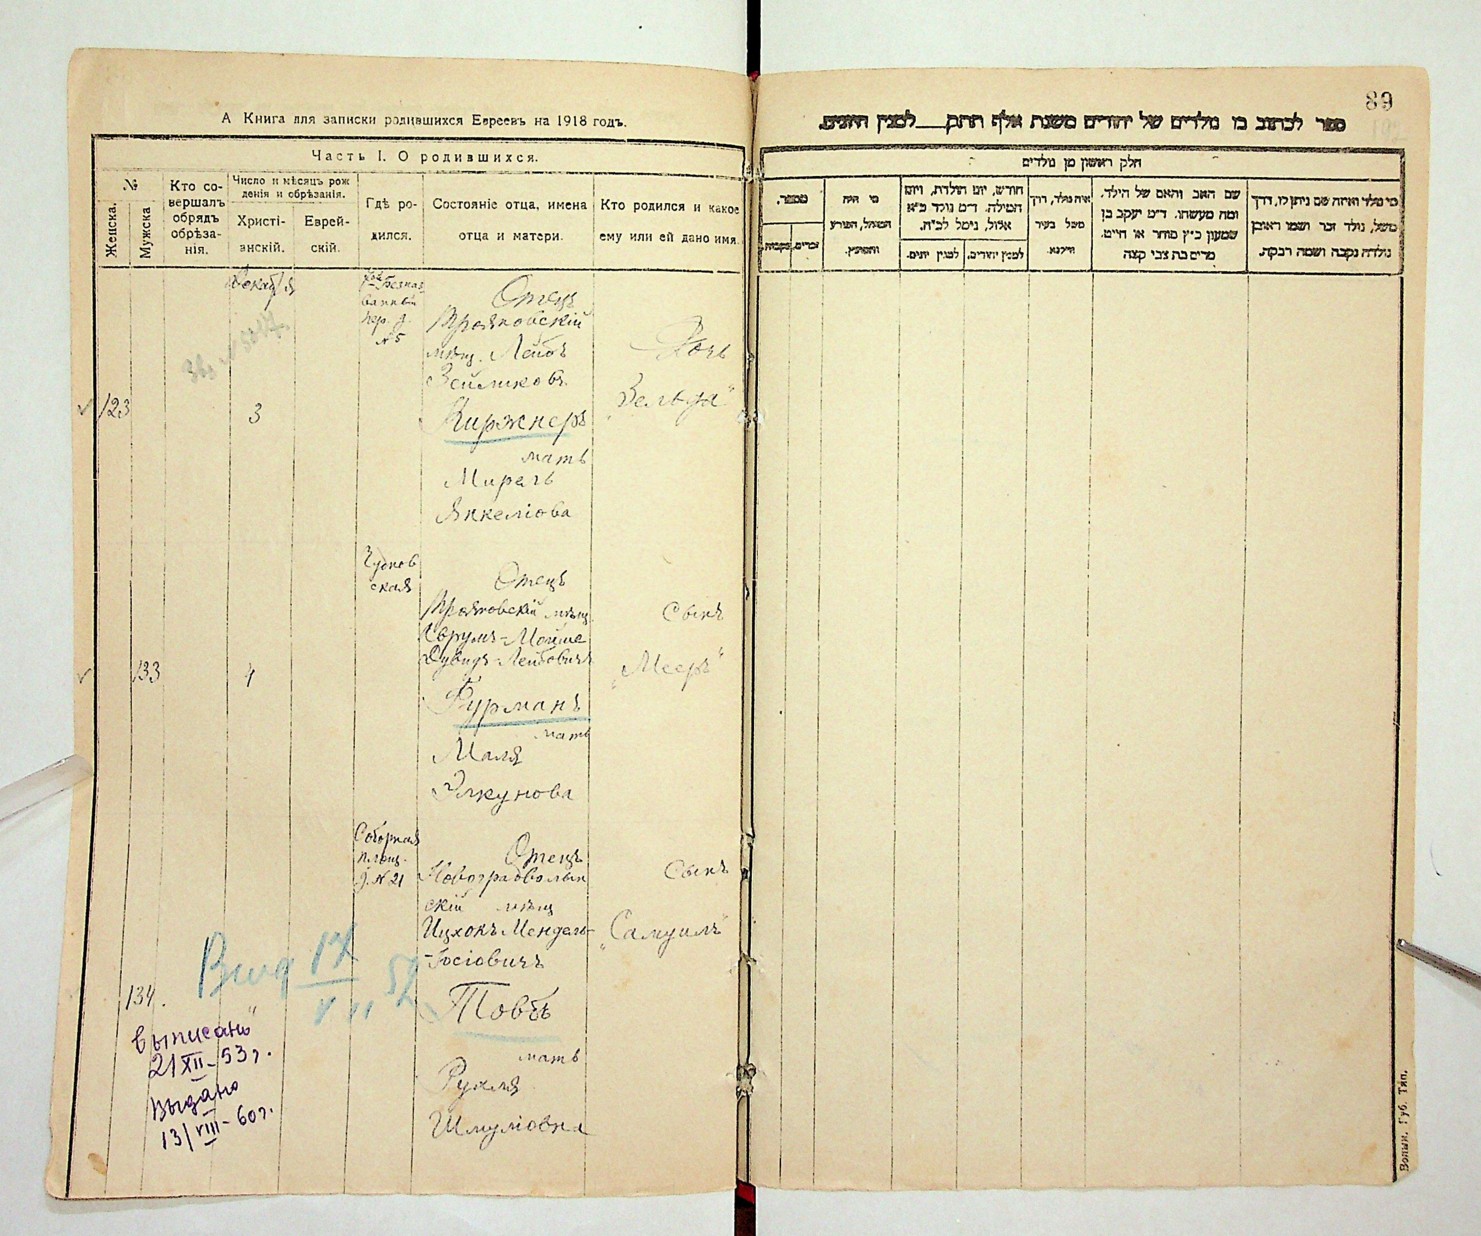 А Книга для записки родившихся Евреевъ на 1918 годъ.
Часть I. О родившихся.
№
Женска.
Мужска
Кто со-
вершалъ
обрядъ
обрѣза-
нія.
Число и мѣсяцъ рож
денія и обрѣзанія.
Христі-
анскій.
Еврей-
скій.
Гдѣ ро-
дился.
Состояніе отца, имена
отца и матери.
Кто родился и какое
ему или ей дано имя.
Декабря
пер. д.
№ 5
Отецъ
мѣщ. Лейбъ
Зейликовъ
Киржнеръ
мать
Мирель
Янкелiова
Дочь
„Зельда"
123
3
Чуднов
ская
Отецъ
мѣщ.
Аврумъ-Мойше
Дувидъ-Лейбовичъ
Фурманъ
мать
Маля
Элкунова
Сынъ
„Мееръ"
133
4
Соборная
площ.
д. № 21
Отецъ
Новоградволын
скій мѣщ
Ицхокъ Мендель-
-Іосіовичъ
Товбъ
мать
Рухля
Шмуловна
Сынъ
„Самуилъ"
134.
17
VII 52
Выписано
21 XII-53г.
Выдано
13/VIII-60г.
89
ספר לכתוב בו נולדים של יהודים משנת אלף תתק___למנין היונים.
חלק ראשון מן נולדים
מספר.
זכרים.
נקבות.
מי היה
המוהל, הפורע
והמוצץ.
חודש, יום הולדת, ויום
המילה. ד״מ נולד כ״א
אלול, נימל לכ״ח.
למנין יהודים.
למנין יונים.
איה נולד, דרך
משל בעיר
ווילנא.
שם האב והאם של הילד.
ומה מעשהו. ד״מ יעקב בן
שמעון כ״ץ סוחר או חייט.
מרים בת צבי קצה
מי נולד ואיזה שם ניתן לו, דרך
משל, נולד זכר ושמו ראובן
נולדה נקבה ושמה רבקה.
Волын. Губ. Тип.